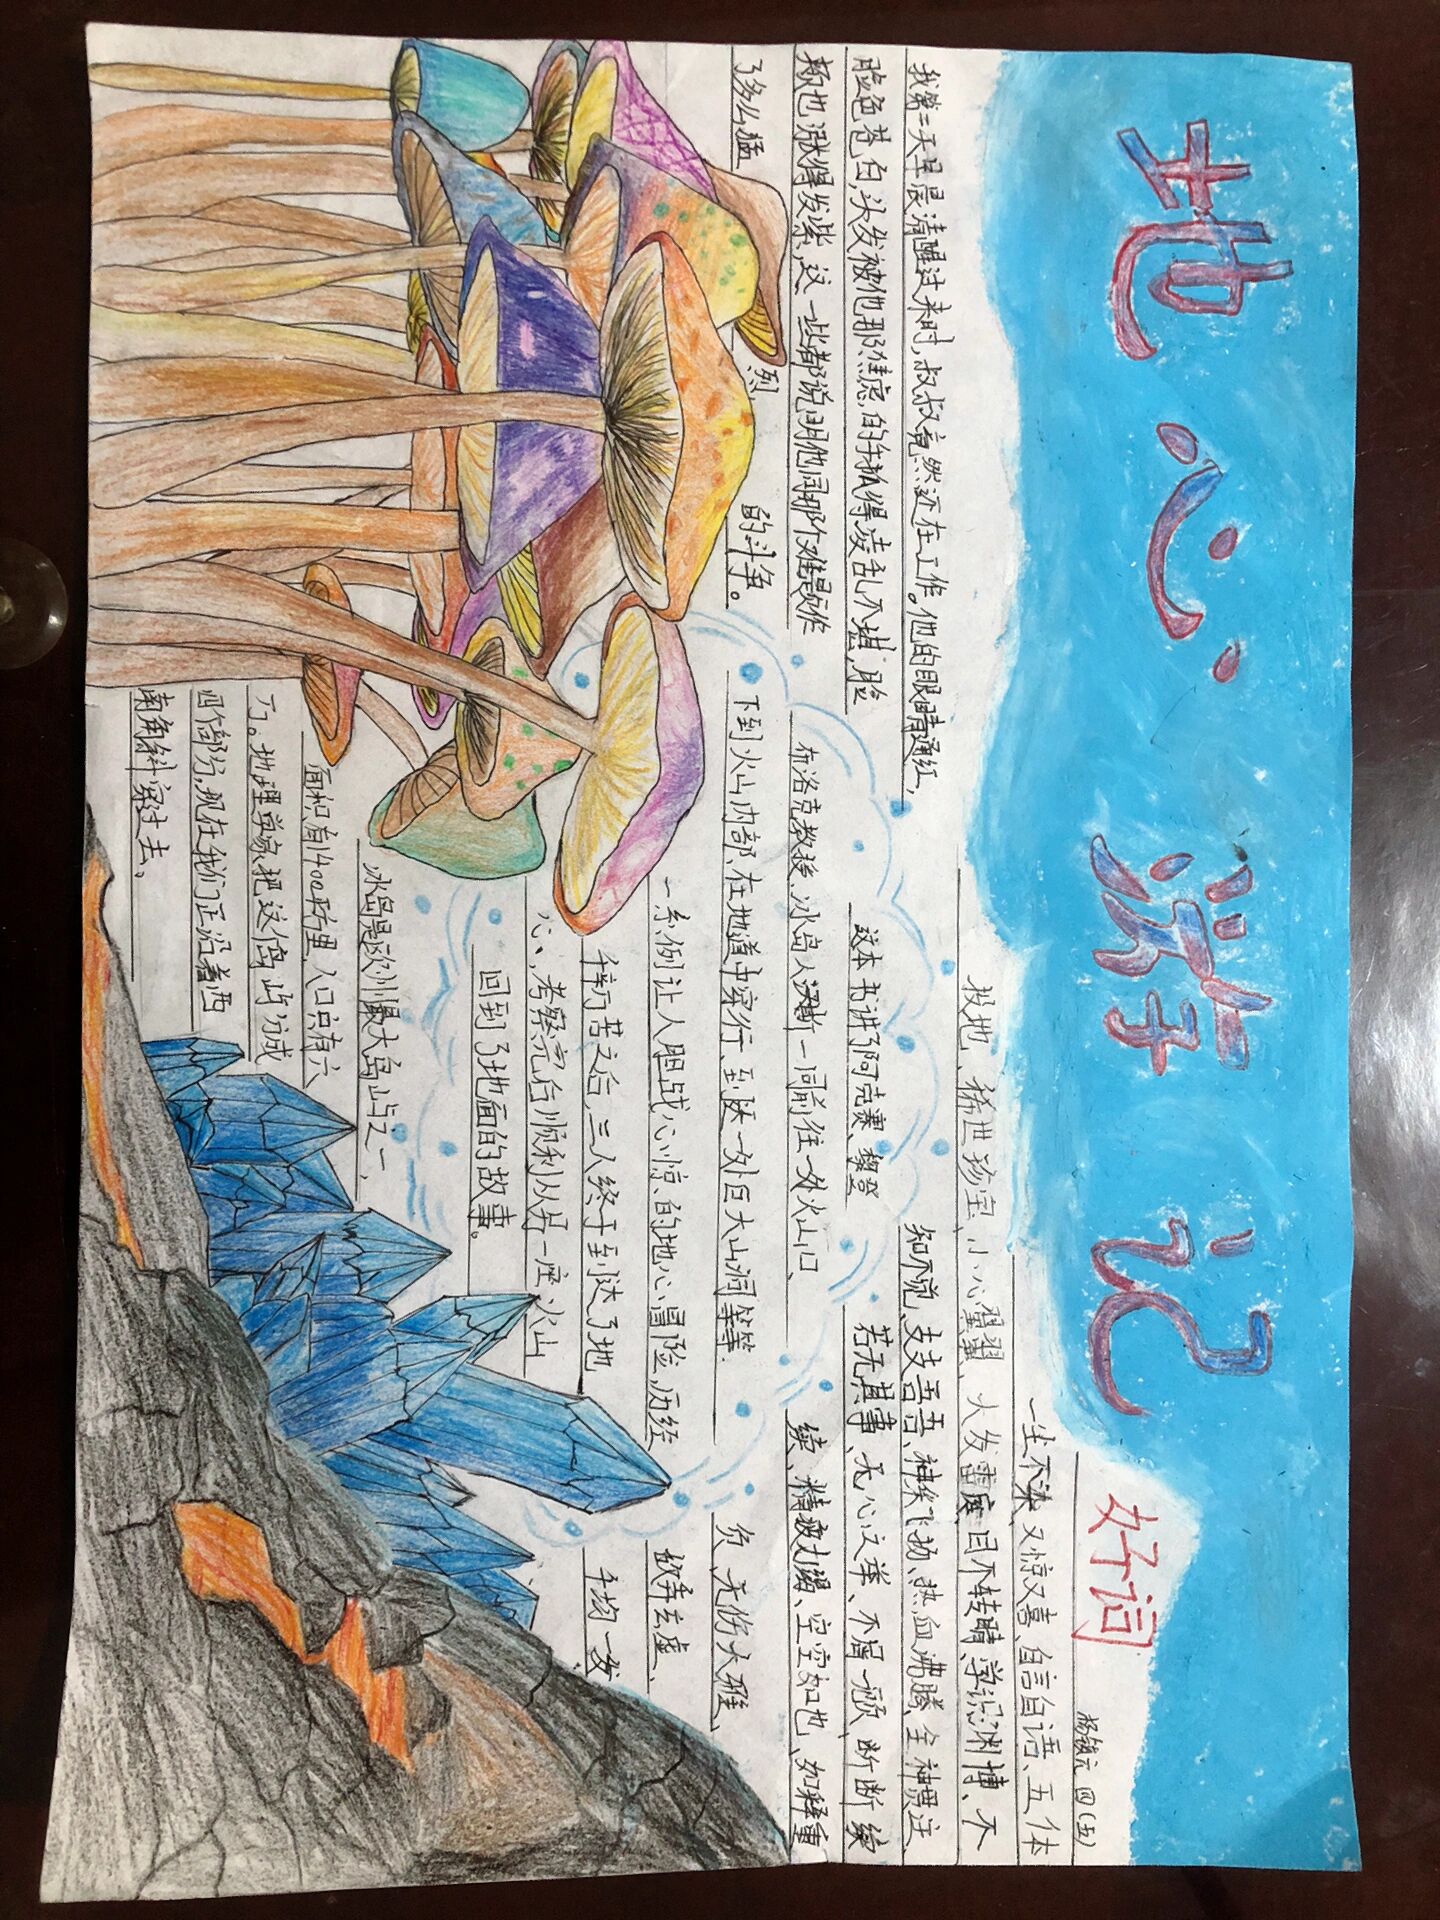 地心游记
我第二天早晨清醒过来时,叔叔竟然还在工作。他的眼睛通红,
脸色苍白,头发被他那焦虑的手抓得凌乱不堪,脸
颊也涨得发紫,这一些都说明他同那个难题作
了多么猛
烈
的斗争。
好词
杨 元 四(五)
一尘不染、又惊又喜、自言自语、五体
投地、稀世珍宝、小心翼翼、大发雷庭、目不转睛、学识渊博、不
知不说、支支吾吾、神采飞扬、热血沸腾、全神贯注、
若无其事、无心之举、不屑一顾、断断续
续、精疲力竭、空空如也、如释重
负、无伤大雅、
故弄玄虚、
千均一发
这本书讲了阿克赛、黎登
布洛克教授、冰岛人汉斯一同前往一处火山口、
下到火山内部、在地道中穿行、到达一处巨大山洞等等.
一系例让人胆战心惊、的地心冒险,历经
千辛万苦之后,三人终于到达了地
心、,考察完后顺利从另一座火山
回到了地面的故事。
冰岛是欧州最大岛屿之一,
面积有1400秄里,人口只有六
万。地理学家把这个岛屿分成
四个部分,现在我们正沿着西
南角斜穿过去。